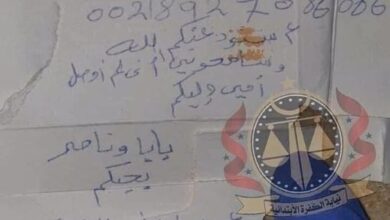 0021892706006
م ستودعتكم الله
وسامحوني أني لم أوصل
أمي إليكم
بابا وناصر
يحبكم
نيابة الكفرة الابتدائية